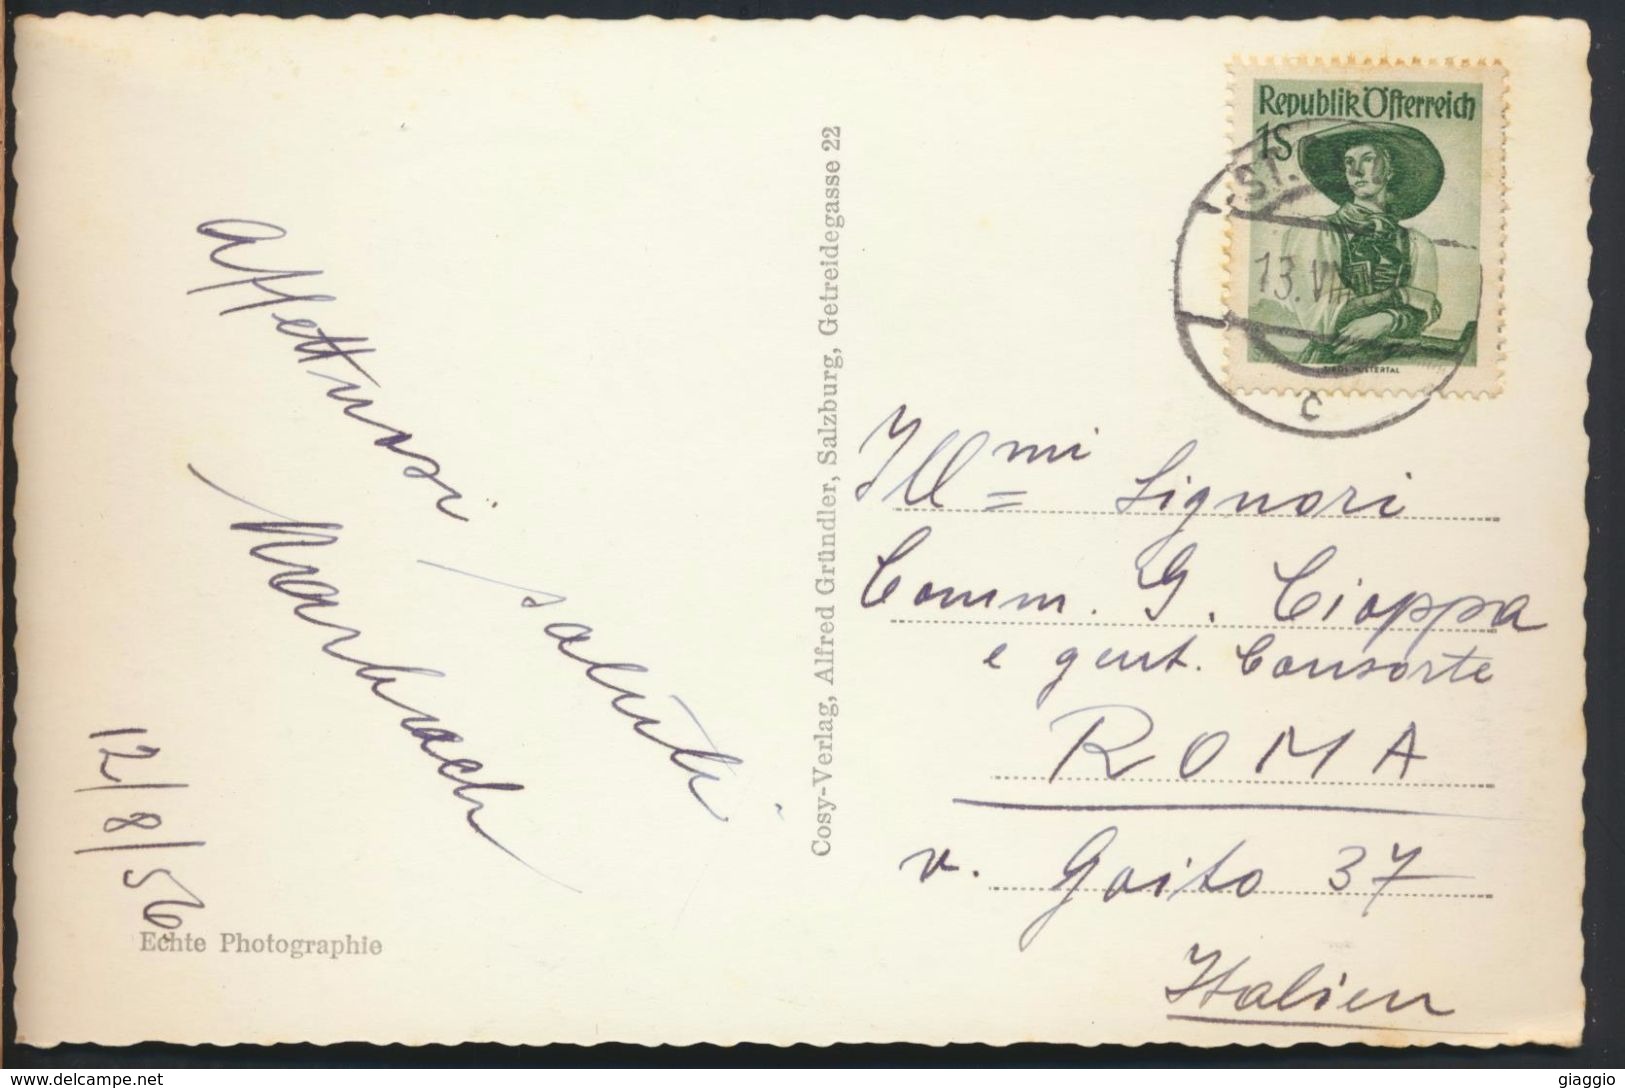 affettuosi saluti
Marbach
12/8/56
Echte Photographie
Cosy-Verlag, Alfred Gründler, Salzburg, Getreidegasse 22
Republik Österreich
1S
ST.
13. VII
C
Ill mi Signori
Comm. G. Cioppa
e gent. Consorte
ROMA
v. Goito 37
Italien
delcampe.net
giaggio